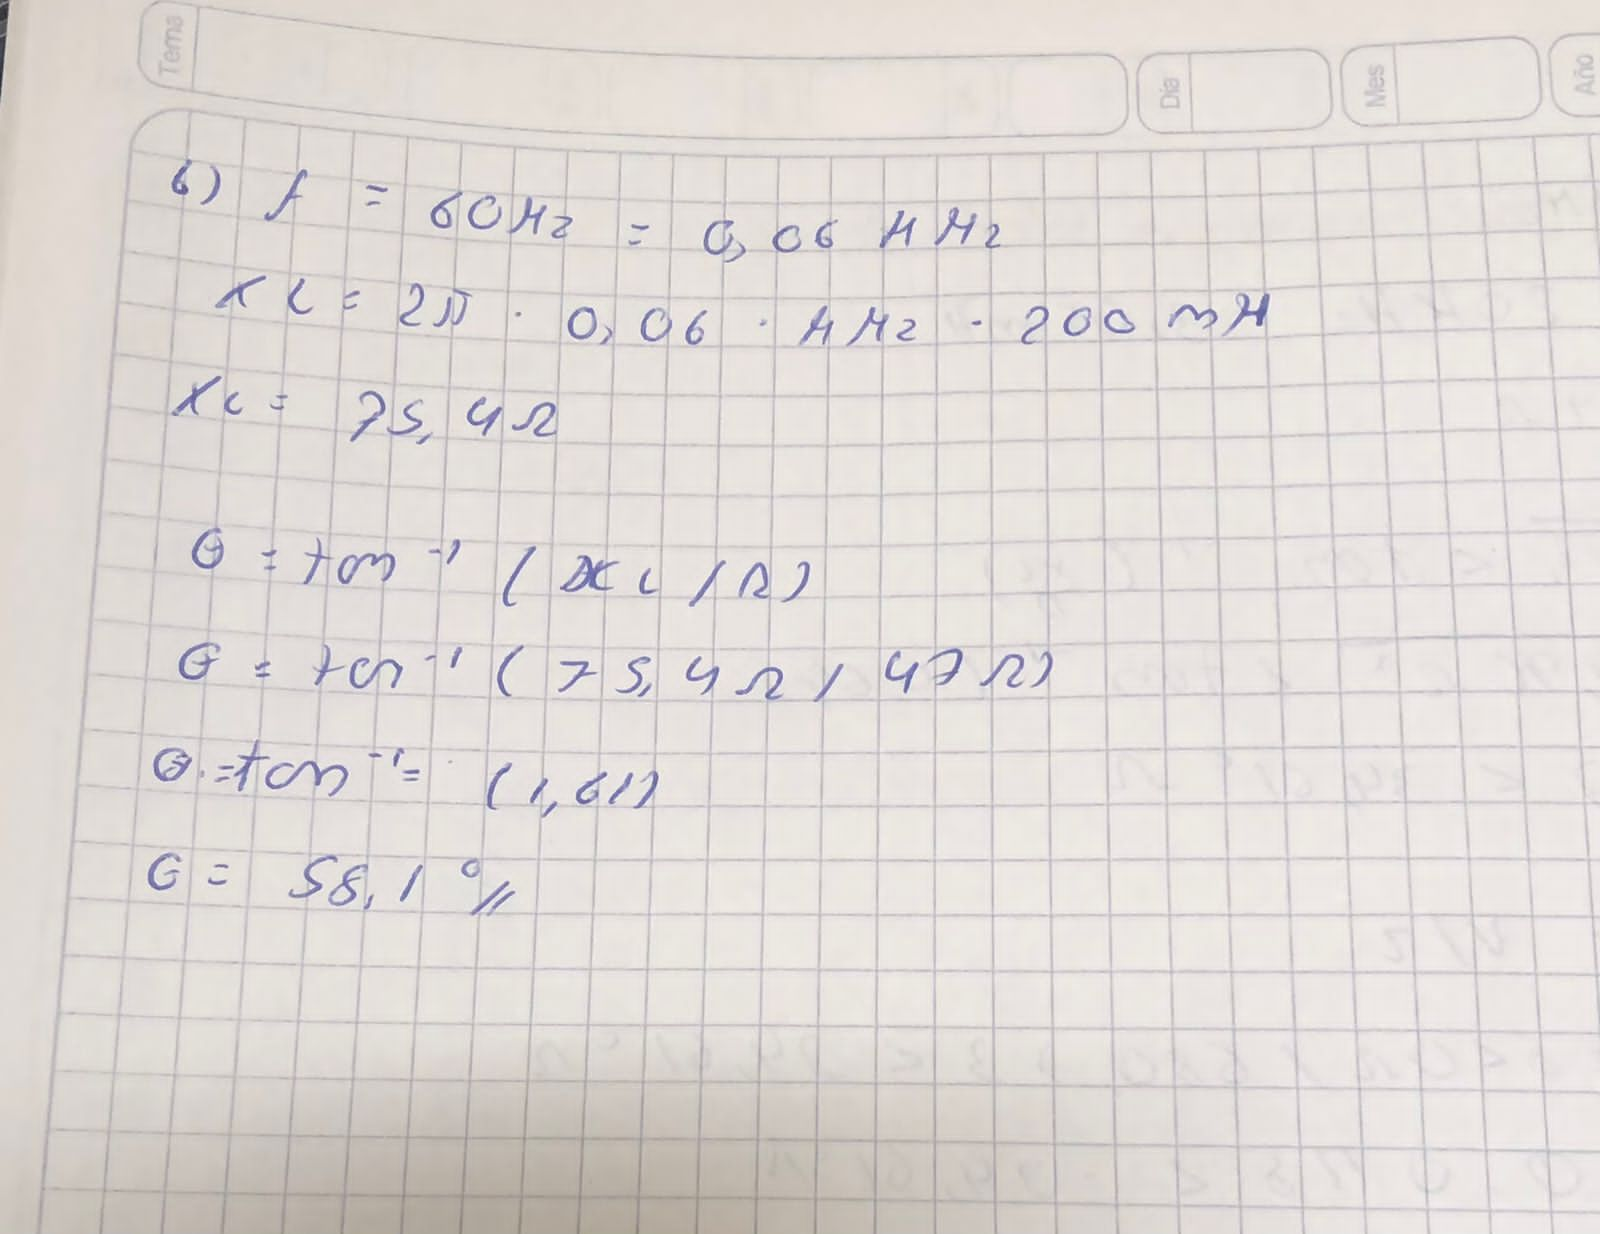 Tema
Día
Mes
Año
b) f = 60Hz = 0,06 KHz
XL = 2π · 0,06 · KHz · 200 mH
XL = 75,4Ω
θ = tan⁻¹ (XL / R)
θ = tan⁻¹ (75,4Ω / 47Ω)
θ = tan⁻¹ = (1,61)
θ = 58,1°//